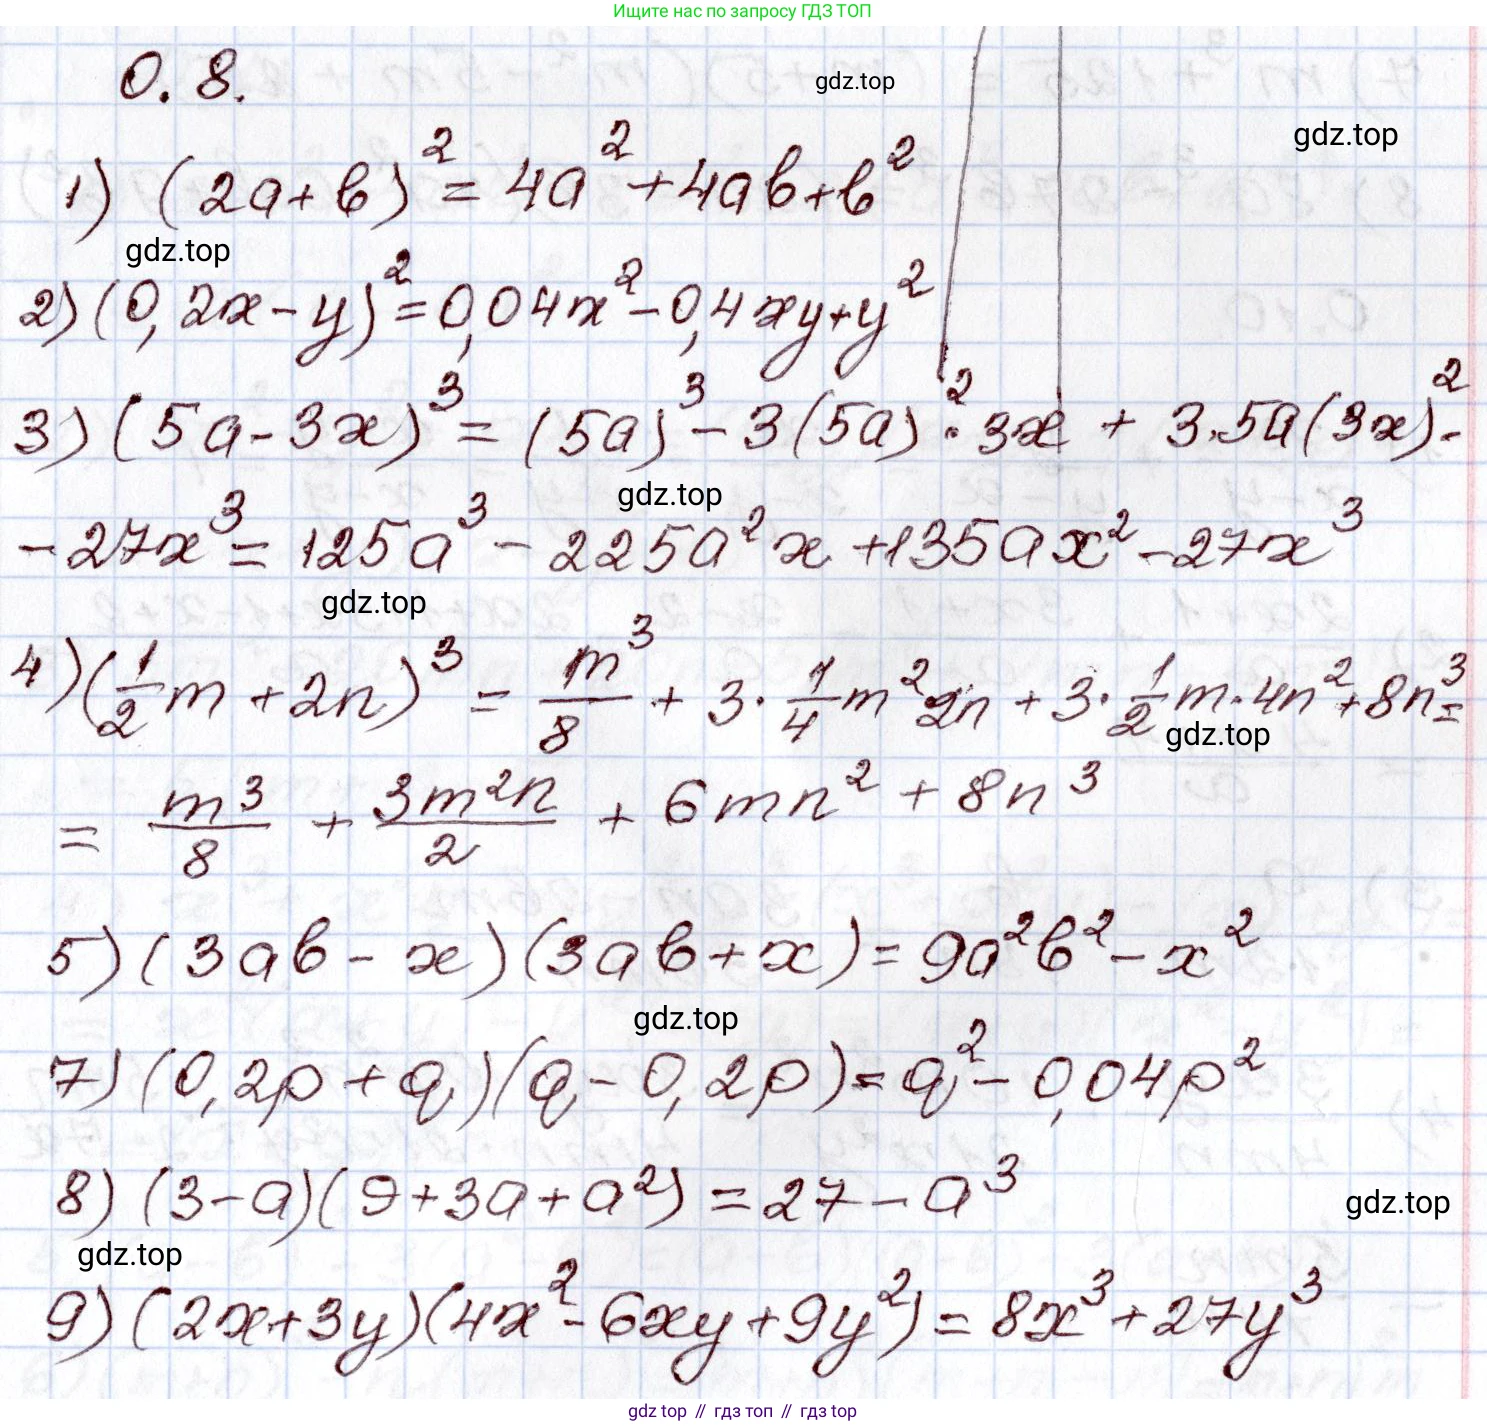 Ищите нас по запросу ГДЗ ТОП
0.8.
gdz.top
gdz.top
1) (2a+b)² = 4a² + 4ab + b²
gdz.top
2) (0,2x - y)² = 0,04x² - 0,4xy + y²
3) (5a - 3x)³ = (5a)³ - 3(5a)² · 3x + 3·5a(3x)² -
gdz.top
- 27x³ = 125a³ - 225a²x + 135ax² - 27x³
gdz.top
4) (1/2 m + 2n)³ = m³/8 + 3 · 1/4 m² 2n + 3 · 1/2 m · 4n² + 8n³ =
gdz.top
= m³/8 + 3m²n/2 + 6mn² + 8n³
5) (3ab - x)(3ab + x) = 9a²b² - x²
gdz.top
7) (0,2p + q)(q - 0,2p) = q² - 0,04p²
8) (3 - a)(9 + 3a + a²) = 27 - a³
gdz.top
gdz.top
9) (2x + 3y)(4x² - 6xy + 9y²) = 8x³ + 27y³
gdz top // гдз топ // гдз top